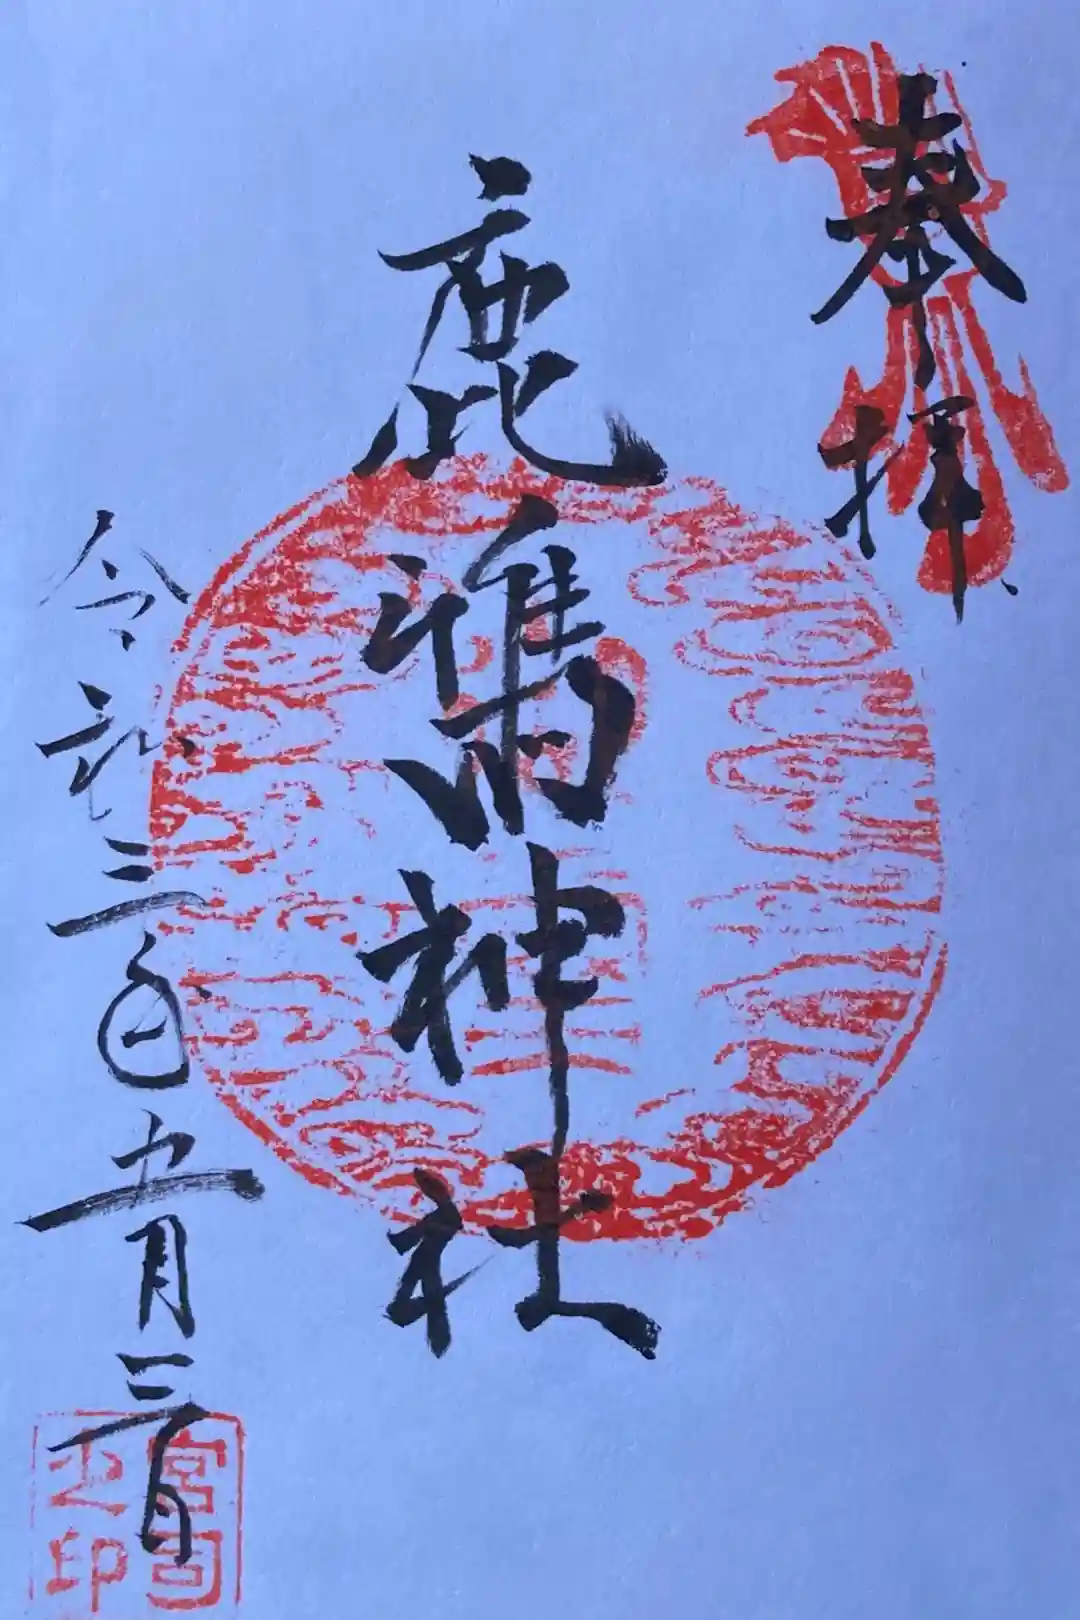 奉拝
鹿嶋神社
令和三年五月三日
宮司
之印